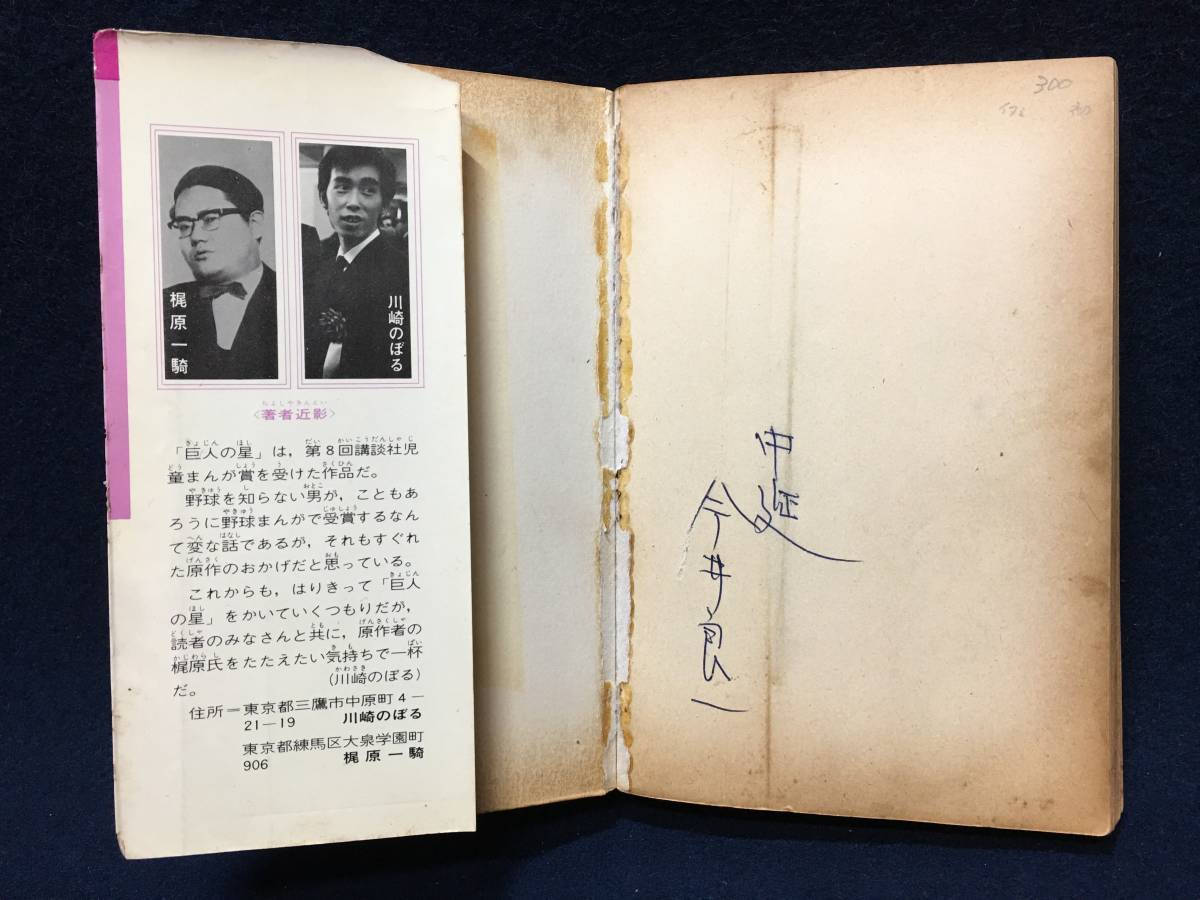 梶原一騎
川崎のぼる
〈著者近影〉
ちょしゃきんえい
「巨人の星」は，第８回講談社児
童まんが賞を受けた作品だ。
野球を知らない男が，こともあ
ろうに野球まんがで受賞するなん
て変な話であるが，それもすぐれ
た原作のおかげだと思っている。
これからも，はりきって「巨人
の星」をかいていくつもりだが，
読者のみなさんと共に，原作者の
梶原氏をたたえたい気持ちで一杯
だ。
（川崎のぼる）
住所＝東京都三鷹市中原町４－
21－19 川崎のぼる
東京都練馬区大泉学園町
906 梶原一騎
300
今井良一